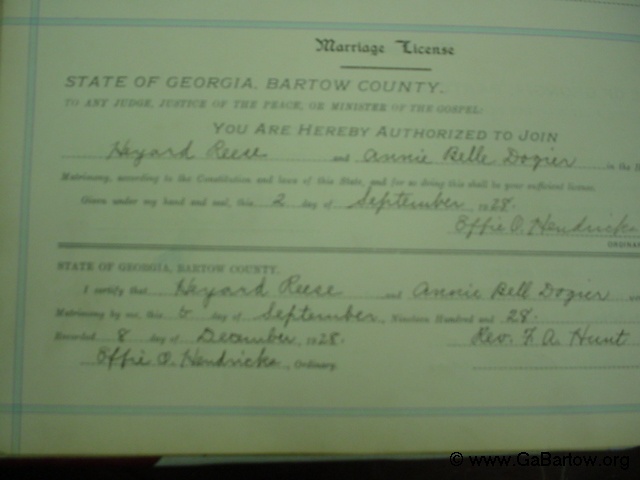 Marriage License
STATE OF GEORGIA, BARTOW COUNTY.
TO ANY JUDGE, JUSTICE OF THE PEACE, OR MINISTER OF THE GOSPEL:
YOU ARE HEREBY AUTHORIZED TO JOIN
Heyard Reese and Annie Belle Dozier in the H
Matrimony, according to the Constitution and laws of this State, and for so doing this shall be your sufficient license.
Given under my hand and seal, this 2 day of September 1928.
Effie O. Hendricks
ORDINAR
STATE OF GEORGIA, BARTOW COUNTY.
I certify that Heyard Reese and Annie Bell Dozier
Matrimony by me, this day of September, Nineteen Hundred and 28.
Recorded 8 day of December, 1928. Rev. F. A. Hunt
Effie O. Hendricks, Ordinary.
© www.GaBartow.org